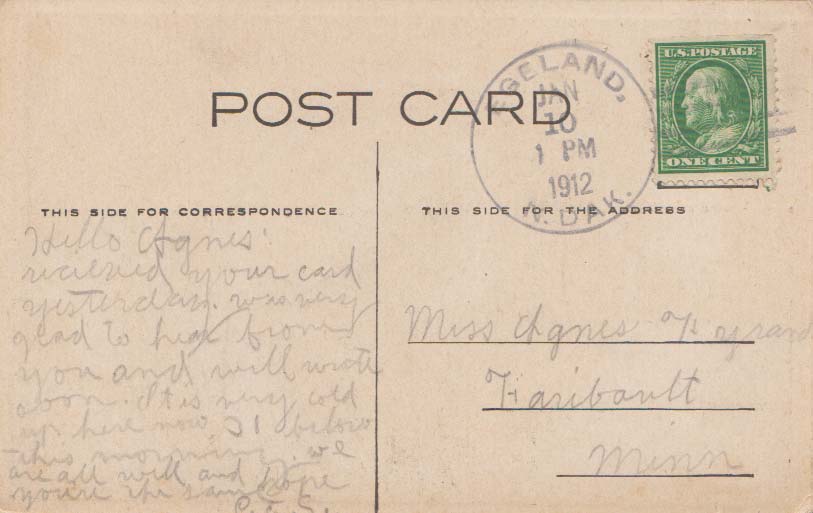 POST CARD
EGELAND,
JAN
10
1 PM
1912
N. DAK.
U.S. POSTAGE
ONE CENT
THIS SIDE FOR CORRESPONDENCE
Hello Agnes
recieved your card
yesterday. was very
glad to hear from
you and will wrote
soon. It is very cold
up here now 31 below
this morning. we
are all well and hope
youre the same
THIS SIDE FOR THE ADDRESS
Miss Agnes
Faribault
Minn